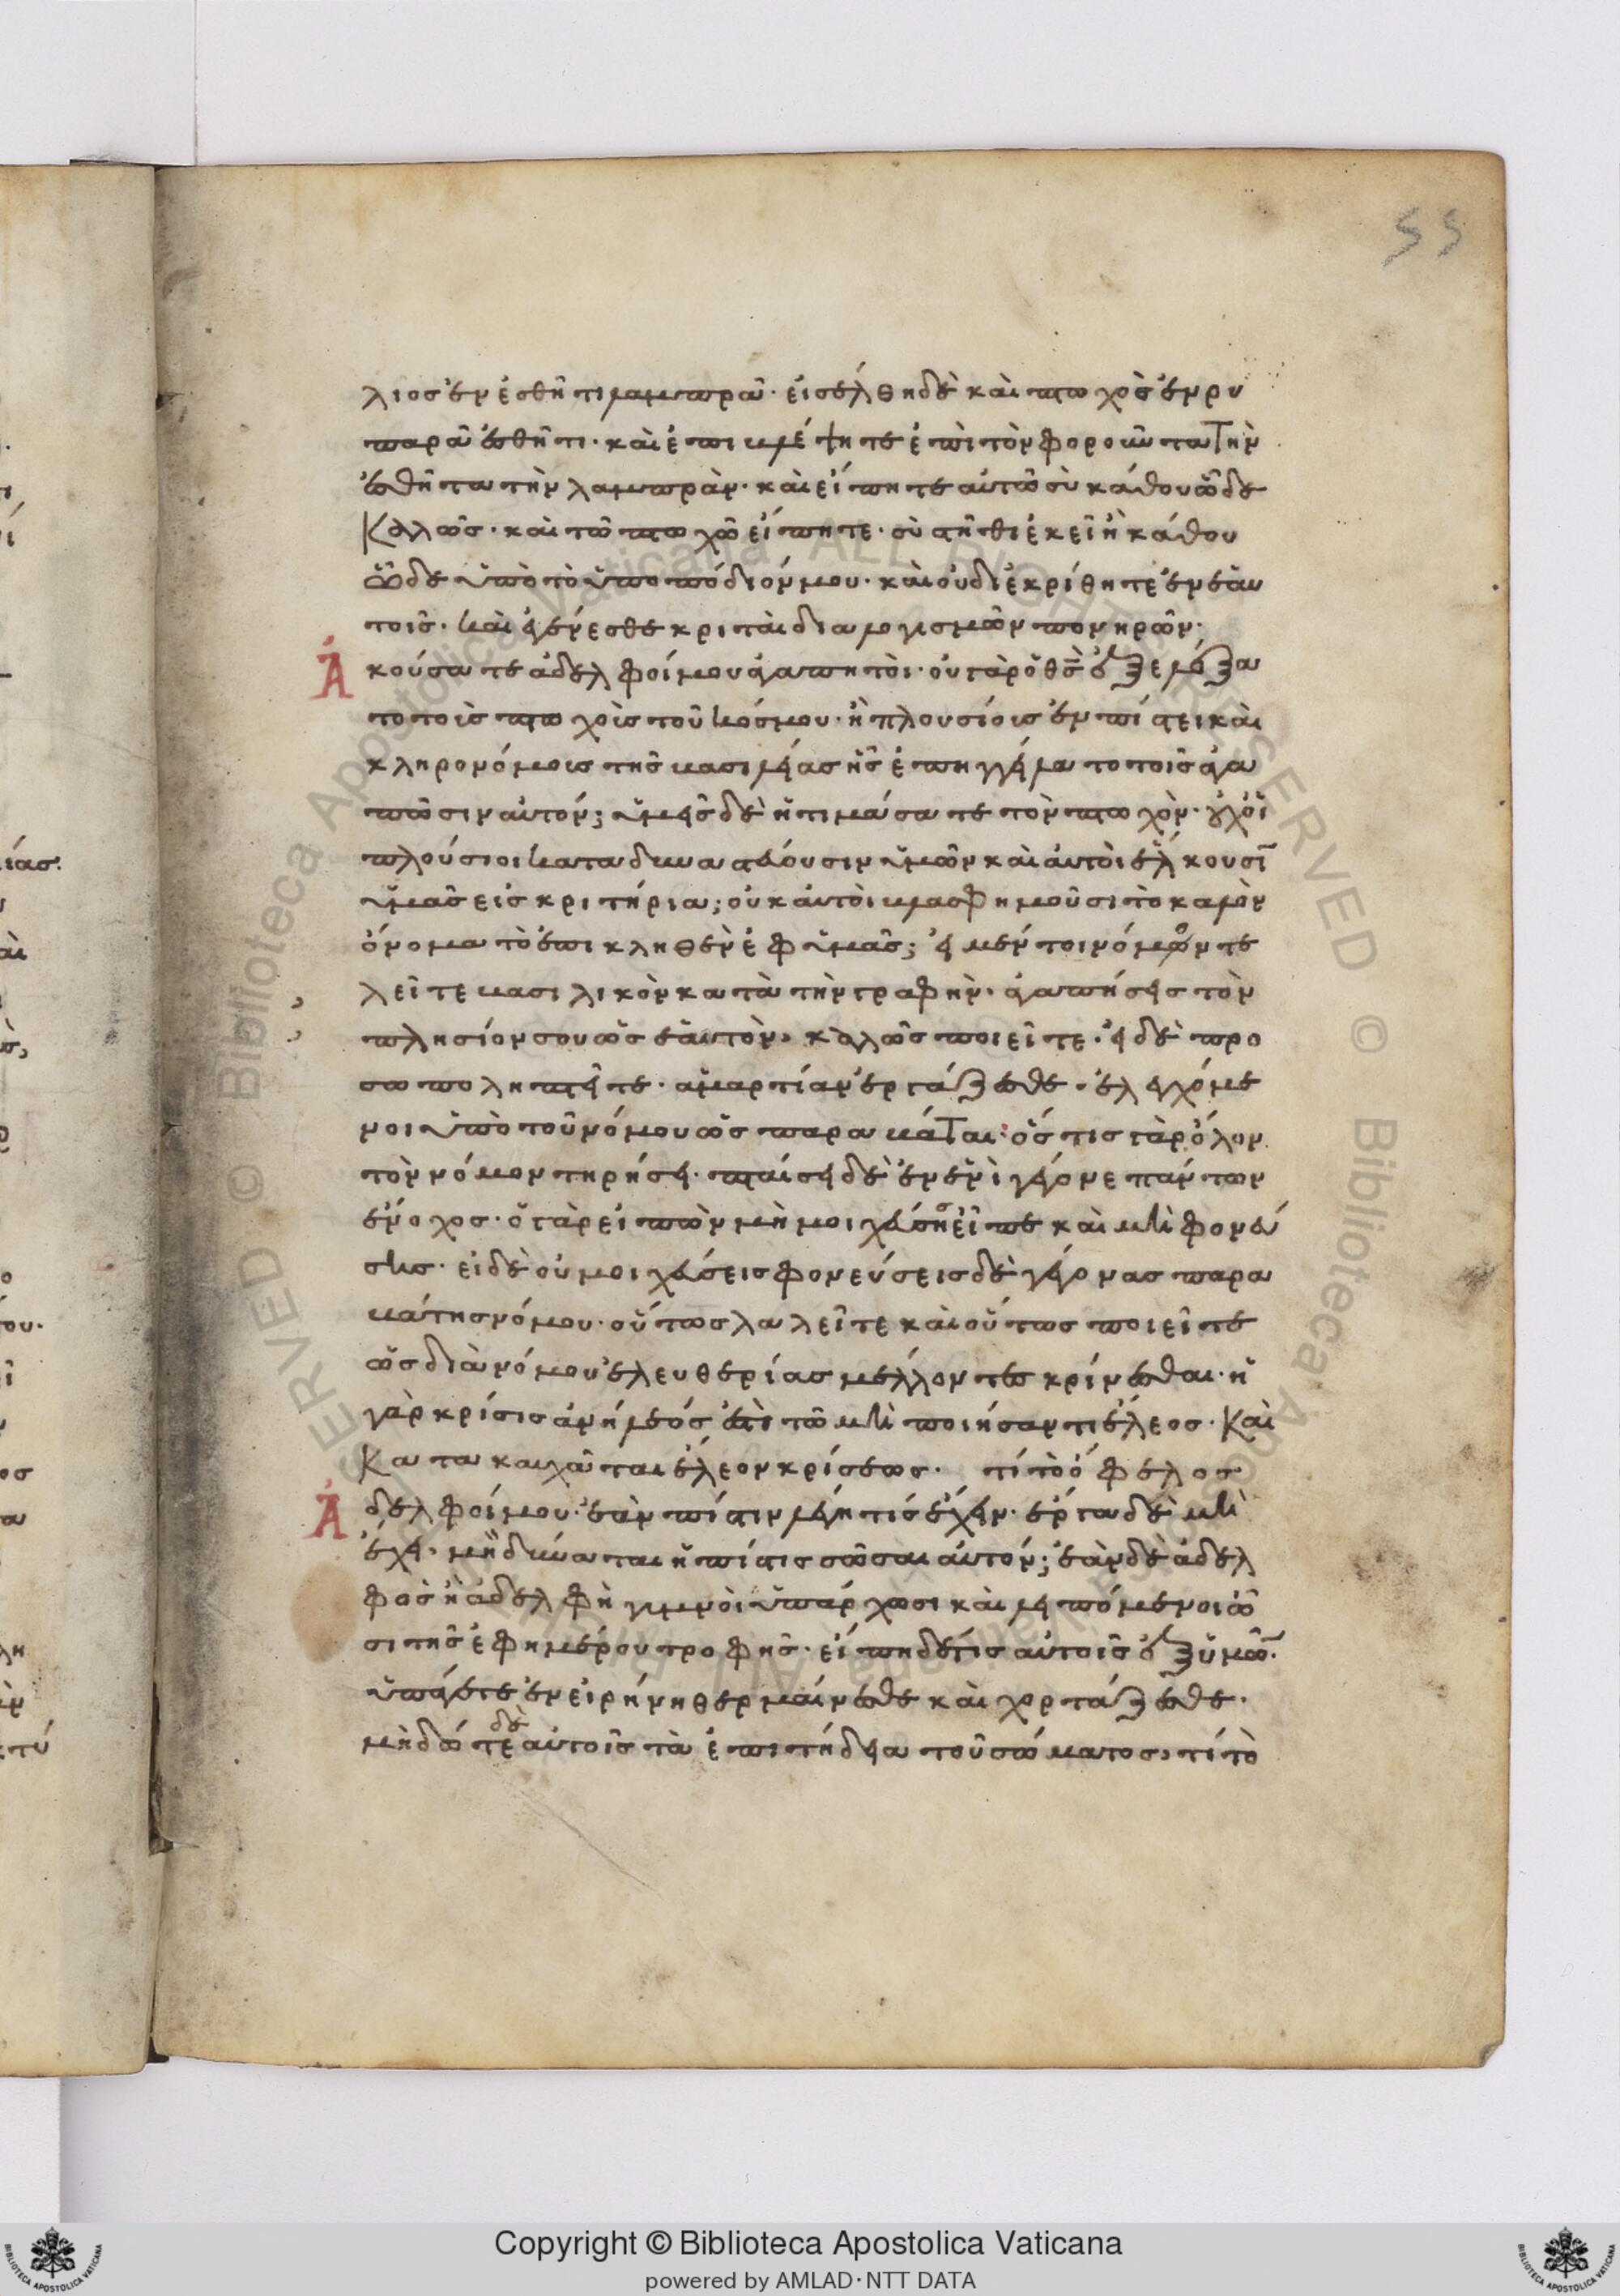 55
λιος ἐν ἐσθῆτι λαμπρᾶ· εἰσέλθη δὲ καὶ πτωχὸς ἐν ρυ
παρᾶ ἐσθῆτι· καὶ ἐπιβλέψητε ἐπὶ τὸν φοροῦντα τὴν
ἐσθῆτα τὴν λαμπρὰν· καὶ εἴπητε αὐτῶ σὺ κάθου ὧδε
Καλῶς· καὶ τῶ πτωχῶ εἴπητε· σὺ στῆθι ἐκεῖ ἢ κάθου
ὧδε ὑπὸ τὸ ὑποπόδιόν μου· καὶ οὐ διεκρίθητε ἐν ἑαυ
τοῖς· καὶ ἐγένεσθε κριταὶ διαλογισμῶν πονηρῶν·
Ἀκούσατε ἀδελφοί μου ἀγαπητοὶ· οὐ γὰρ ὁ θς ἐξελέξα
το τοὶς πτωχοὶς τοῦ κόσμου· ἢ πλουσίοις ἐν πίστει καὶ
κληρονόμοις τῆς βασιλείας ἧς ἐπηγγείλατο τοῖς ἀγα
πῶσιν αὐτόν; ὑμεῖς δὲ ἠτιμάσατε τὸν πτωχὸν· οὐχ οἱ
πλούσιοι καταδυναστεύουσιν ὑμῶν καὶ αὐτοὶ ἕλκουσῖ
ὑμᾶς εἰς κριτήρια; οὐκ αὐτοὶ βλασφημοῦσι τὸ καλὸν
ὄνομα τὸ ἐπικληθὲν ἐφ ὑμᾶς; εἰ μέν τοι νόμον τε
λεῖτε βασιλικὸν κατὰ τὴν γραφὴν· ἀγαπήσεις τὸν
πλησίον σου ὡς ἑαυτὸν, καλῶς ποιεῖτε· εἰ δὲ προ
σωποληπτεῖτε· ἁμαρτίαν ἐργάζεσθε· ἐλεγχόμε
νοι ὑπὸ τοῦ νόμου ὡς παραβάται· ὅς τις γὰρ ὅλον
τὸν νόμον τηρήσει· πταίσει δὲ ἐν ἑνὶ γέγονε πάντων
ἔνοχος· ὁ γὰρ εἰπὼν μὴ μοιχεύσης εἶπε καὶ μὴ φονεύ
σης· εἰ δὲ οὐ μοιχεύσεις φονεύσεις δὲ γέγονας παρα
βάτης νόμου· οὕτως λαλεῖτε καὶ οὕτως ποιεῖτε
ὡς διὰ νόμου ἐλευθερίας μέλλοντες κρίνεσθαι· ἡ
γὰρ κρίσις ἀνήλεός ἐστι τῶ μὴ ποιήσαντι ἔλεος· Καὶ
Κατακαυχᾶται ἔλεον κρίσεως· τί τὸ ὄφελος
Ἀδελφοί μου· ἐὰν πίστιν λέγη τίς ἔχειν· ἔργα δὲ μὴ
ἔχει· μὴ δύναται ἡ πίστις σῶσαι αὐτόν; ἐὰν δὲ ἀδελ
φὸς ἢ ἀδελφὴ γυμνοὶ ὑπάρχωσι καὶ λειπόμενοι ὦ
σι τῆς ἐφημέρου τροφῆς· εἴπη δέ τις αὐτοῖς ἐξ ὑμῶ·
ὑπάγετε ἐν εἰρήνη θερμαίνεσθε καὶ χορτάζεσθε·
δὲ
μὴ δῶτε αὐτοῖς τὰ ἐπιτήδεια τοῦ σώματος, τί τὸ
Copyright © Biblioteca Apostolica Vaticana
powered by AMLAD·NTT DATA